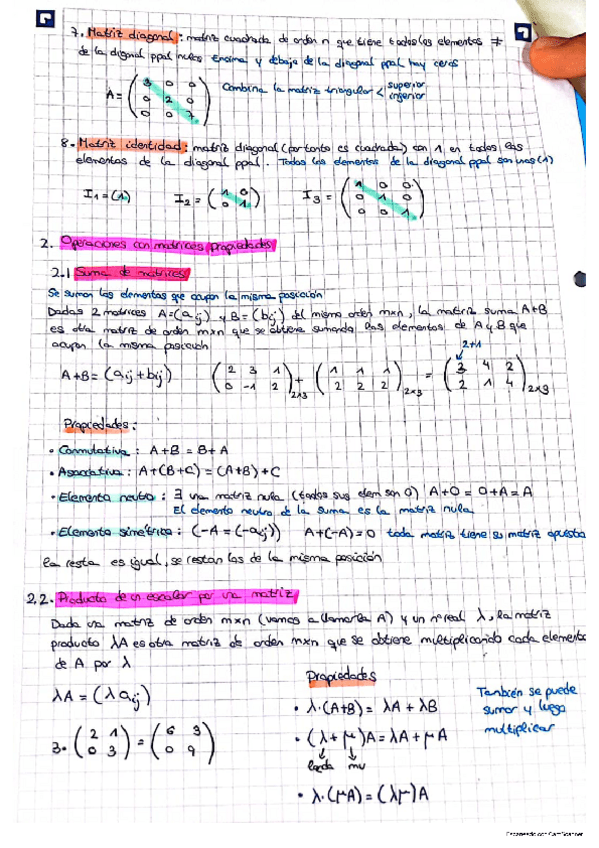 7. Matriz diagonal: matriz cuadrada de orden n que tiene todos los elementos ≠
de la diagonal ppal nulos Encima y debajo de la diagonal ppal hay ceros
A = ( 3 0 0 Combina la matriz triangular < superior
0 2 0 inferior
0 0 7 )
8. Matriz identidad: matriz diagonal (por tanto es cuadrada) con 1 en todos los
elementos de la diagonal ppal. Todos los elementos de la diagonal ppal son unos (1)
I1 = (1) I2 = ( 1 0 / 0 1 ) I3 = ( 1 0 0 / 0 1 0 / 0 0 1 )
2. Operaciones con matrices propiedades
2.1 Suma de matrices
Se suman los elementos que ocupan la misma posición
Dadas 2 matrices A=(aij) y B=(bij) del mismo orden mxn, la matriz suma A+B
es otra matriz de orden mxn que se obtiene sumando los elementos de A y B que
ocupan la misma posición
2+1
A+B = (aij + bij) ( 2 3 1 / 0 -1 2 )2x3 + ( 1 1 1 / 2 2 2 )2x3 = ( 3 4 2 / 2 1 4 )2x3
Propiedades:
• Conmutativa: A+B = B+A
• Asociativa: A+(B+C) = (A+B)+C
• Elemento neutro: ∃ una matriz nula (todos sus elem son 0) A+0 = 0+A = A
El elemento neutro de la suma es la matriz nula
• Elemento simétrico: (-A = (-aij)) A+(-A) = 0 toda matriz tiene su matriz opuesta
la resta es igual, se restan los de la misma posición
2.2. Producto de un escalar por una matriz
Dada una matriz de orden mxn (vamos a llamarla A) y un nº real λ, la matriz
producto λA es otra matriz de orden mxn que se obtiene multiplicando cada elemento
de A por λ
Propiedades
λA = (λ aij)
• λ·(A+B) = λA + λB
También se puede
sumar y luego
multiplicar
3· ( 2 1 / 0 3 ) = ( 6 3 / 0 9 )
• (λ + μ)A = λA + μA
mu
• λ·(μA) = (λμ)A
Escaneado con CamScanner